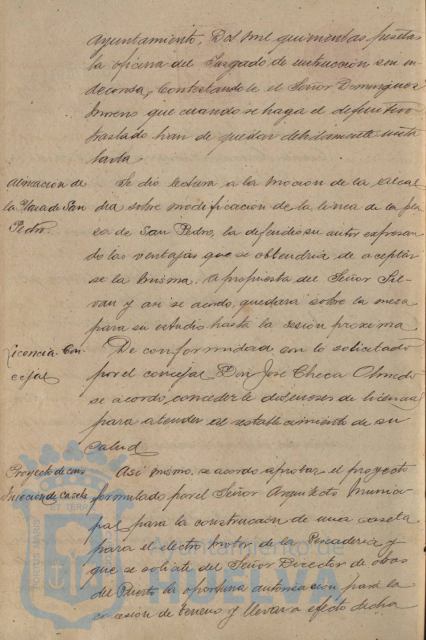 Ayuntamiento, Dos mil quinientas pesetas
la oficina del Juzgado de instrucción son in
decorosa, Contestandole el Señor Dominguez
Moreno que cuando se haga el definitivo
traslado han de quedar debidamente insta
lada.
Alineación de
la Plaza de San
Pedro.
Se dio lectura a la moción de la Alcal
dia sobre modificación de la linea de la pla
za de San Pedro, la defendio su autor expresan
do las ventajas que se obtendria de aceptar
se la misma. A propuesta del Señor Sil-
van y asi se acordo, quedara sobre la mesa
para su estudio hasta la sesion proxima
Licencia Con
cejal
De conformidad con lo solicitado
por el concejal Don José Checa Olmedo
se acordo, concederle dos meses de licencia
para atender al establecimiento de su
salud
Proyecto de cons
trucción de caseta
Asi mismo, se acordo aprobar el proyecto
formulado por el Señor Arquitecto Munici-
pal para la construcción de una caseta
para el electro motor de la Pescaderia y
que se solicite del Señor Director de obras
del Puerto la oportuna autorización para la
cesion de terreno y llevar a efecto dicha
Ayuntamiento de
HUELVA